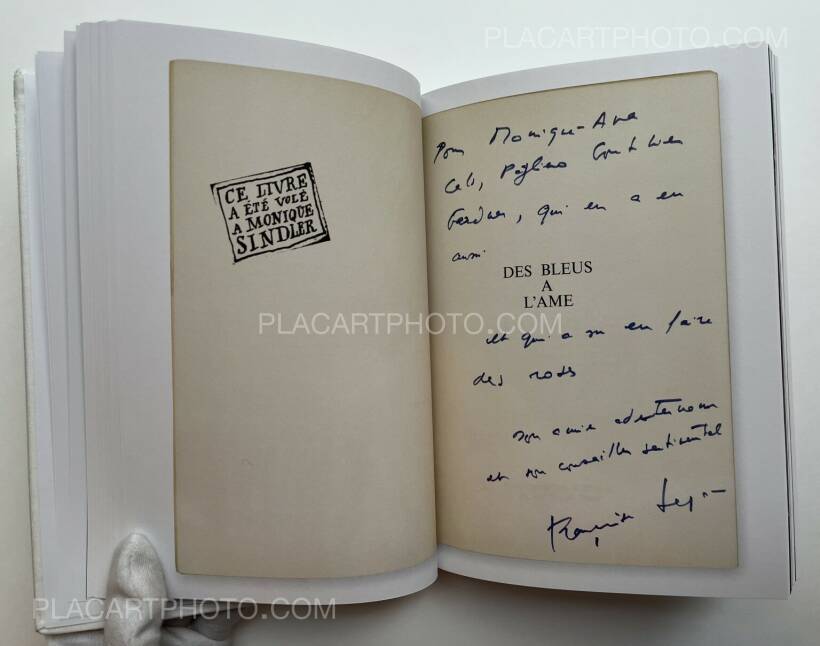 PLACARTPHOTO.COM
CE LIVRE
A ÉTÉ VOLÉ
A MONIQUE
SINDLER
Pour Monique-Ana
qui en a en
aussi
DES BLEUS
A
L'AME
PLACARTPHOTO.COM
et qui a su en faire
des roses
son amie
et son conseiller sentimental
Françoise Sagan
PLACARTPHOTO.COM